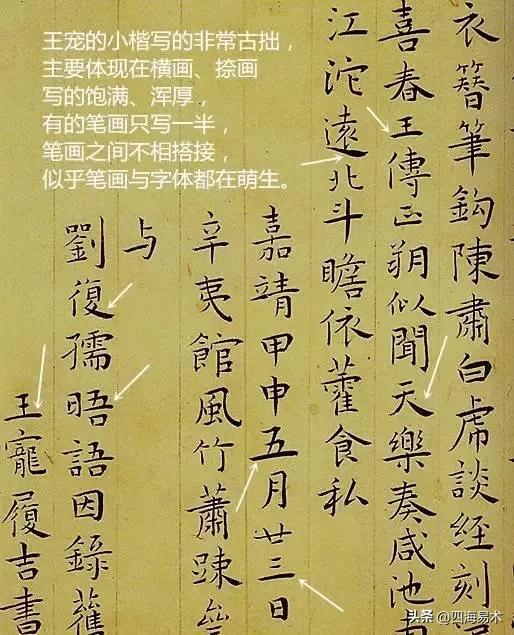 王宠的小楷写的非常古拙，
主要体现在横画、捺画
写的饱满、浑厚，
有的笔画只写一半，
笔画之间不相搭接，
似乎笔画与字体都在萌生。
衣簪筆鈎陳肅白虎談經刻
喜春王傳正朔似聞天樂奏咸池
江沱遠北斗瞻依藿食私
嘉靖甲申五月廿三日
辛夷館風竹蕭踈
与
劉復孺晤語因錄舊
王寵履吉書
头条 @四海易术